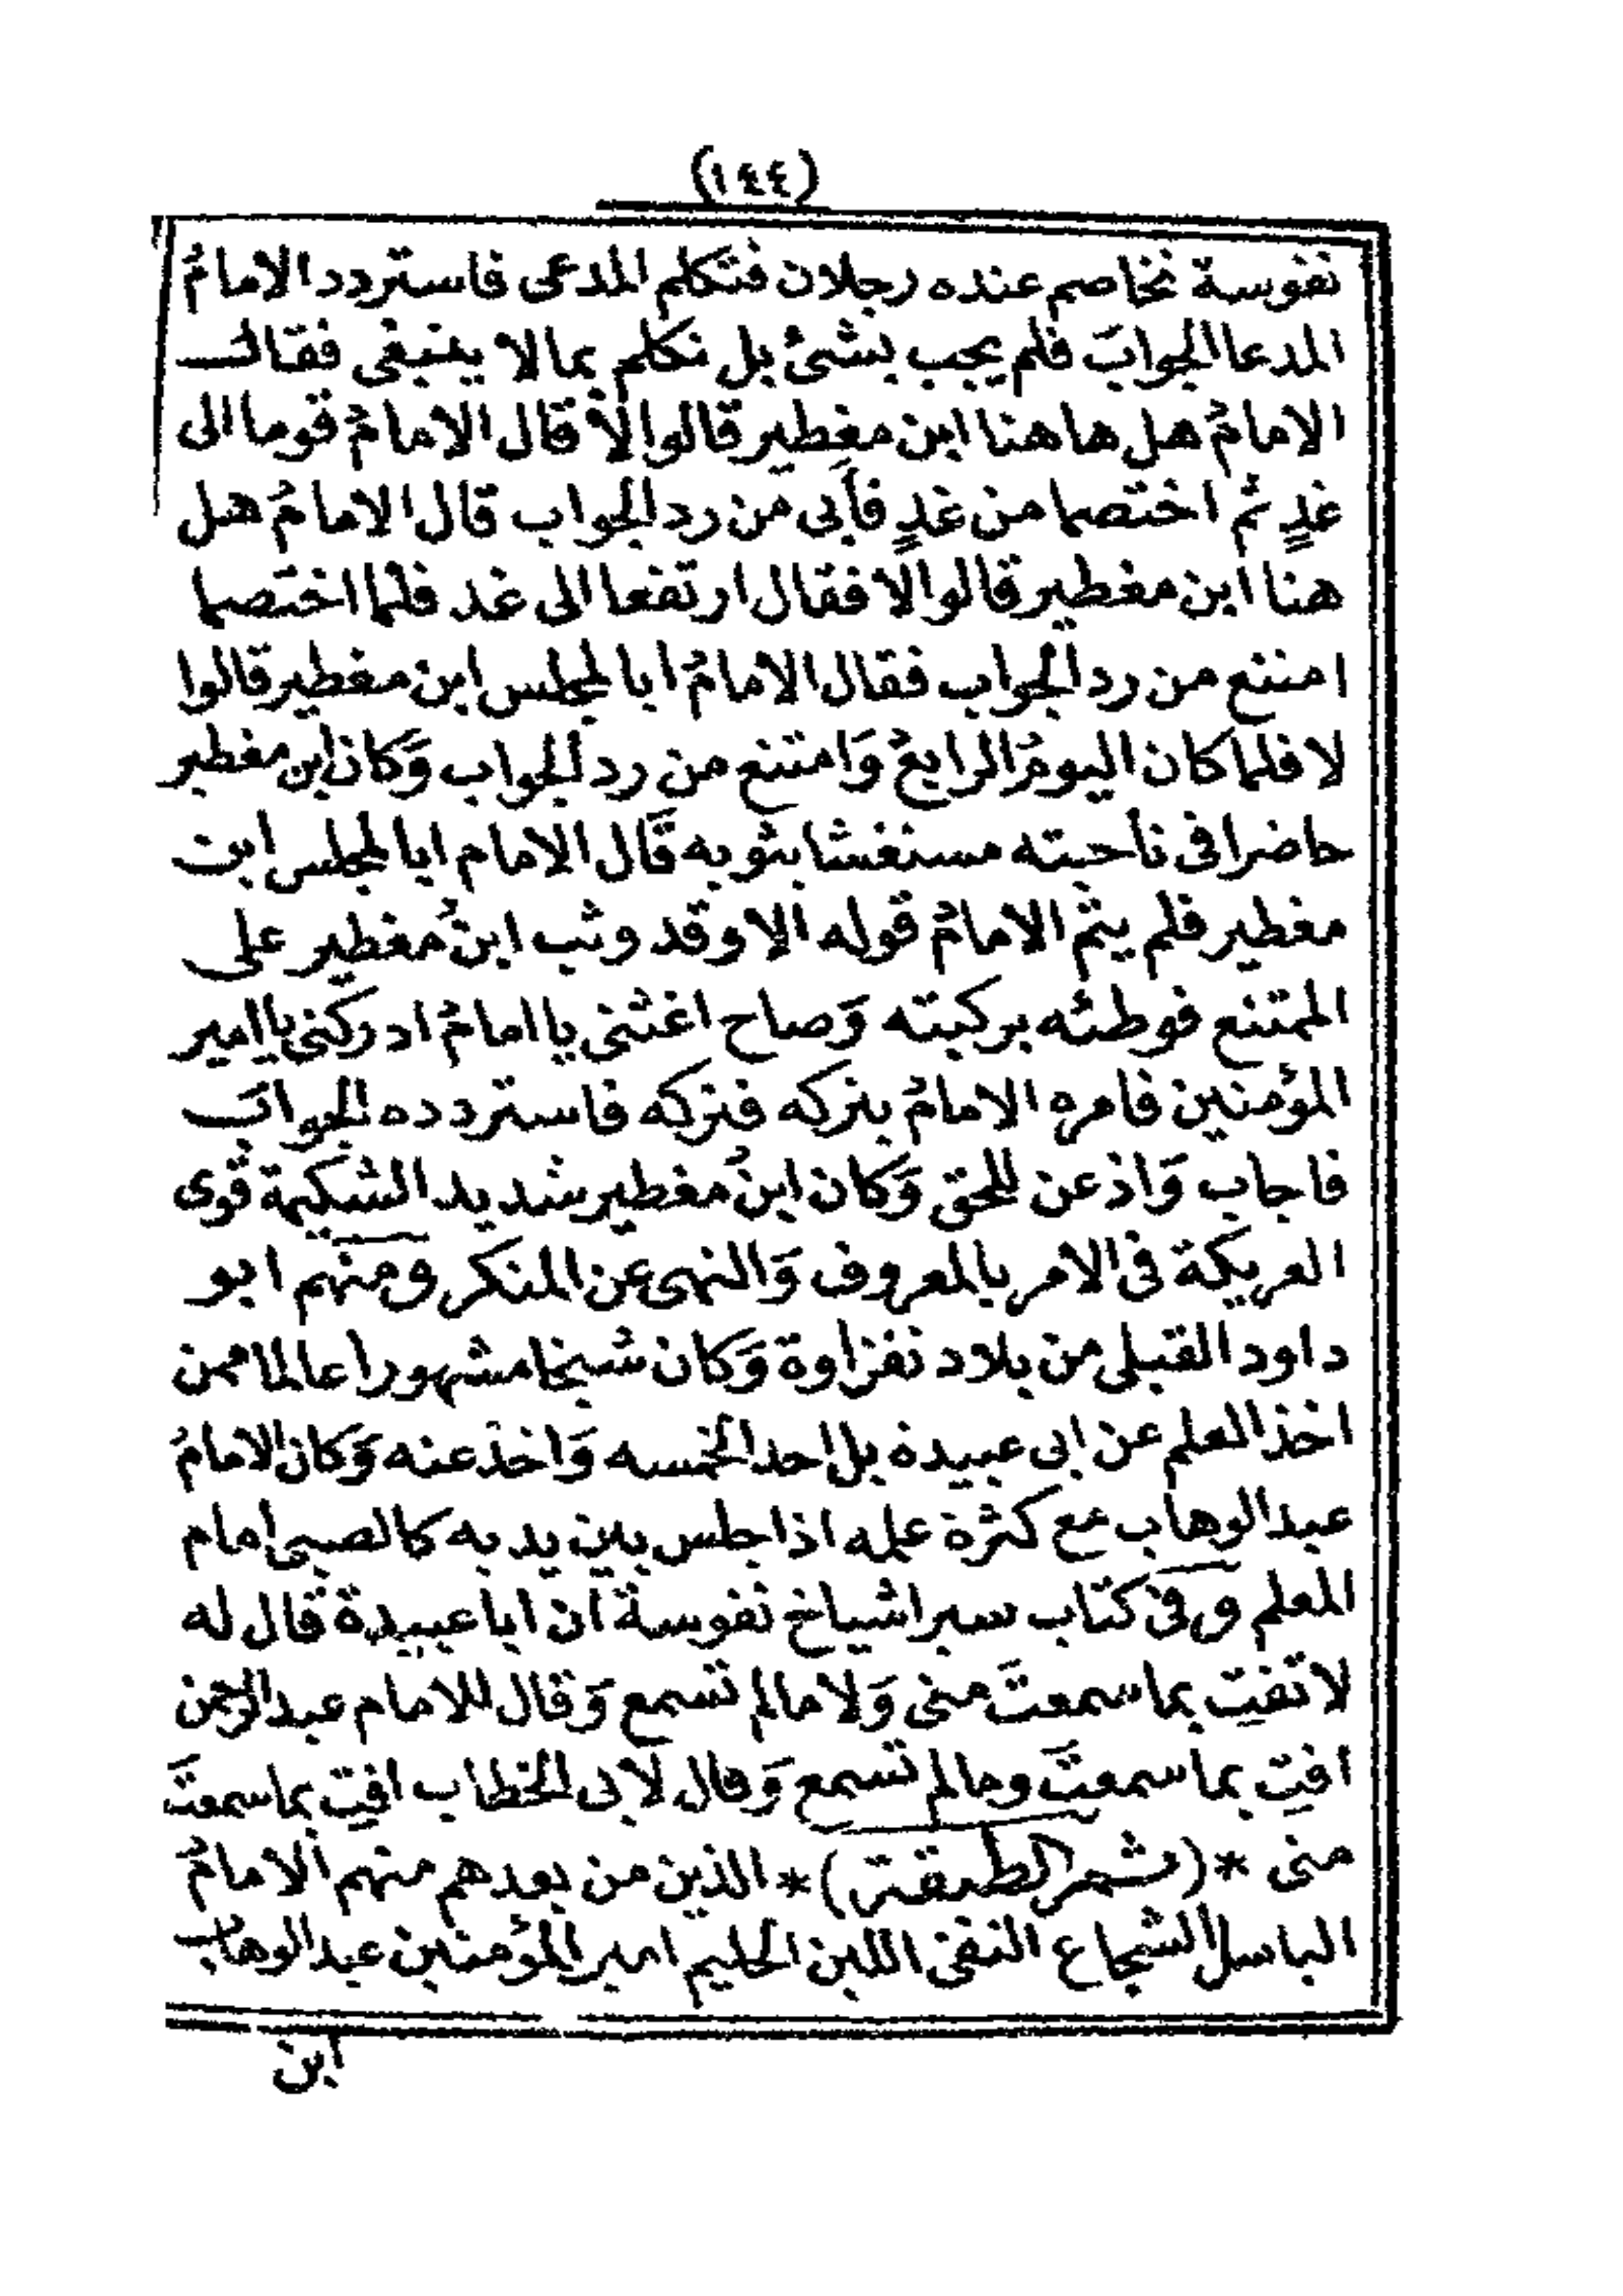 (١٤٤)
نفوسة تخاصم عنده رجلان فتكلم المدعى فاستردد الامامُ
المدعا الجوابَ فلم يجب بشئ بل تكلم بما لا ينبغى فقال
الامامُ هل ها هنا ابن مغطير قالوا لا قال الامامُ قوما الى
غدٍ ثم اختصما من غدٍ فأبى من رد الجواب قال الامامُ هل
هنا ابن مغطير قالوا لا فقال ارتفعا الى غد فلما اختصما
امتنع من رد الجواب فقال الامامُ ابا لمجلس ابن مغطير قالوا
لا فلما كان اليومُ الرابعُ وَامتنع من رد الجواب وَكان ابن مغطير
حاضرا فى ناحيته مستغشا بثوبه قَال الامام ابا لمجلس ابن
مغطير فلم يتم الامامُ قوله الا وقد وثب ابنُ مغطير على
الممتنع فوطئه بركبته وَصاح اغثنى يا امامُ ادركنى يا امير
المؤمنين فامره الامامُ بتركه فتركه فاستردده الجوابَ
فاجاب وَاذعن للحق وَكان ابنُ مغطير شديد الشكيمة قوى
العريكة فى الامر بالمعروف وَالنهى عن المنكر ومنهم ابو
داود القبلى من بلاد نفزاوة وَكان شيخا مشهورا عالما ممن
اخذ العلم عن ابى عبيدة بل احد الخمسه وَاخذ عنه وَكان الامامُ
عبد الوهاب مع كثرة علمه اذا جلس بين يديه كالصبى امام
المعلم وفى كتاب سير اشياخ نفوسة ان ابا عبيدة قال له
لا تفتِ بما سمعتَ منى وَلا ما لم تسمع وَقال للامام عبد الرحمن
افتِ بما سمعتَ وما لم تسمع وَقال لابى الخطاب افتِ بما سمعتَ
منى *(ثم الطبقة)* الذين من بعدهم منهم الامامُ
الباسل الشجاع التقى اللين الحليم امير المؤمنين عبد الوهاب
ابن